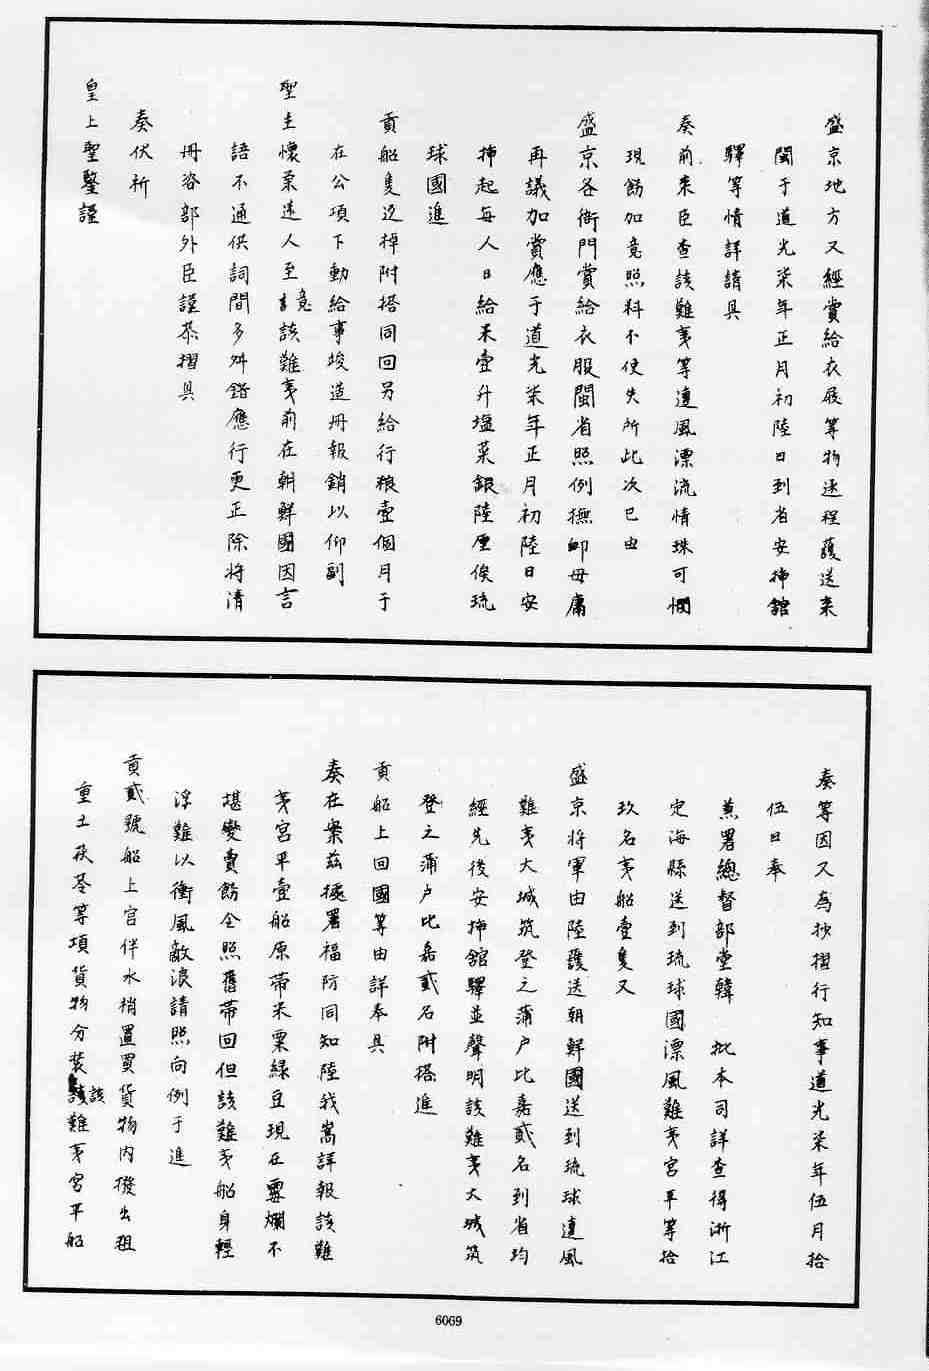 盛京地方又經賞給衣履等物逐程護送來
閩于道光柒年正月初陸日到省安揷館
驛等情詳請具
奏前來臣查該難夷等遭風漂流情殊可憫
現飭加意照料不使失所此次已由
盛京各衙門賞給衣服閩省照例撫卹毋庸
再議加賞應于道光柒年正月初陸日安
揷起每人日給米壹升塩菜銀陸厘俟琉
球國進
貢船隻返棹附搭同回另給行粮壹個月于
在公項下動給事竣造册報銷以仰副
聖主懷柔遠人至意該難夷前在朝鮮國因言
語不通供詞間多舛錯應行更正除將清
册咨部外臣謹恭摺具
奏伏祈
皇上聖鑒謹
奏等因又為抄摺行知事道光柒年伍月拾
伍日奉
兼署總督部堂韓 批本司詳查得浙江
定海縣送到琉球國漂風難夷宮平等拾
玖名夷船壹隻又
盛京將軍由陸護送朝鮮國送到琉球遭風
難夷大城筑登之蒲户比嘉貳名到省均
經先後安揷館驛並聲明該難夷大城筑
登之蒲户比嘉貳名附搭進
貢船上回國等由詳奉具
奏在案茲據署福防同知陸我嵩詳報該難
夷宮平壹船原帶米粟綠豆現在霉爛不
堪變賣飭令照舊帶回但該難夷船身輕
浮難以衝風敵浪請照向例于進
貢貳號船上官伴水梢置買貨物內撥出粗
重土茯苓等項貨物分裝該難夷宮平船
6069